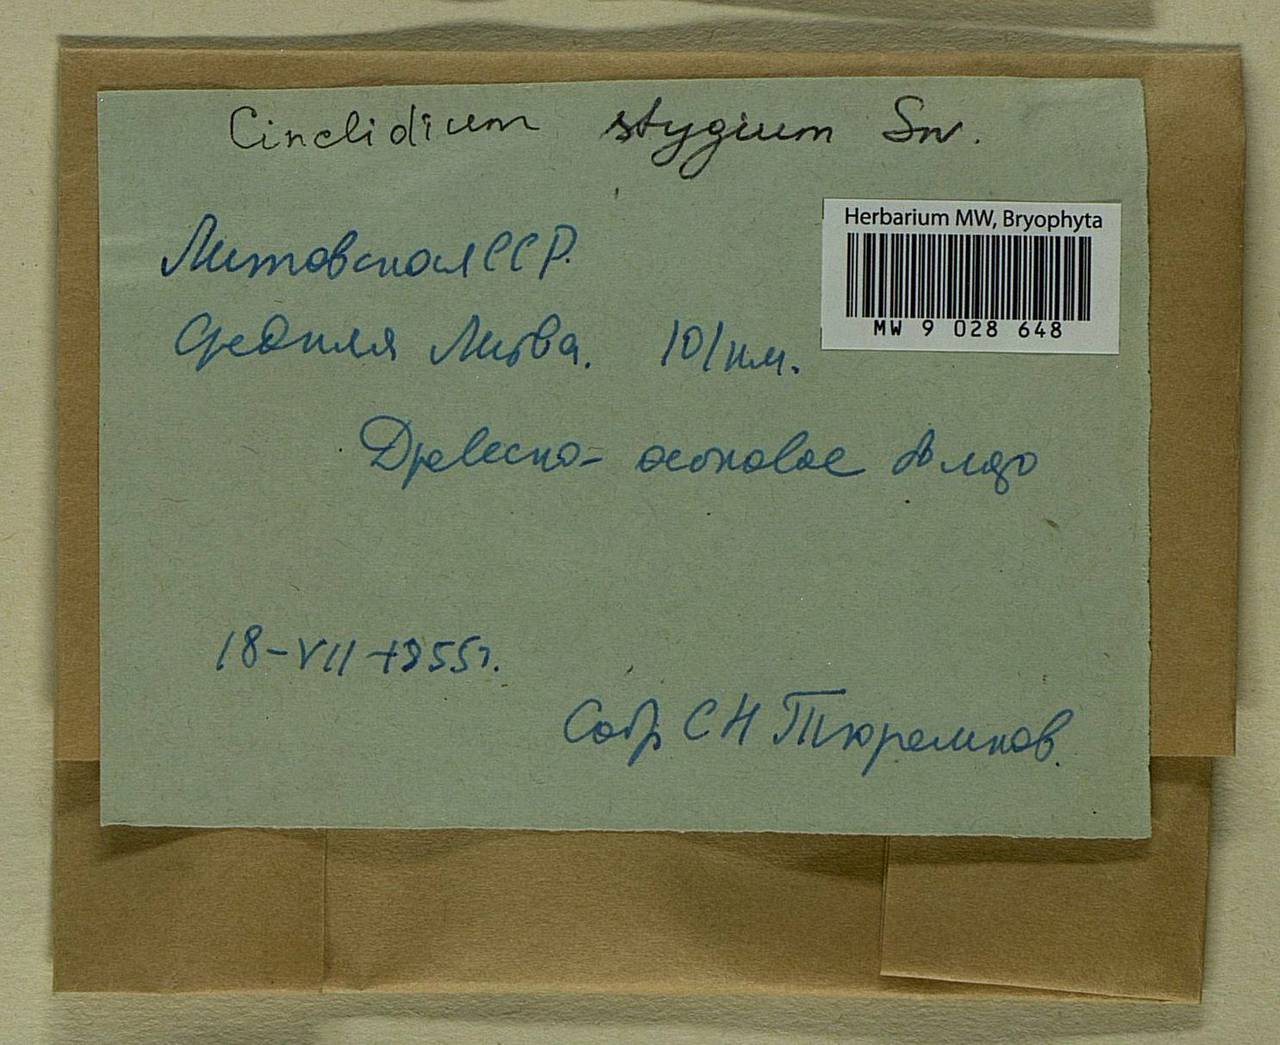 Cinclidium stygium Sw.
Литовская ССР.
Средняя Литва. 101 км.
Древесно-осоковое
18-VII-1955г.
Собр С Н Тюремнов.
Herbarium MW, Bryophyta
MW 9 028 648